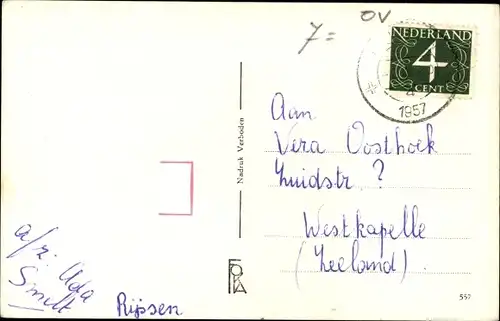 7= OV
NEDERLAND
4
CENT
4
1957
Aan
Vera Oosthoek
Zuidstr. ?
Westkapelle
(Zeeland)
Nadruk Verboden
a/z: Ada
Smelt
Rijssen
FOKA
557